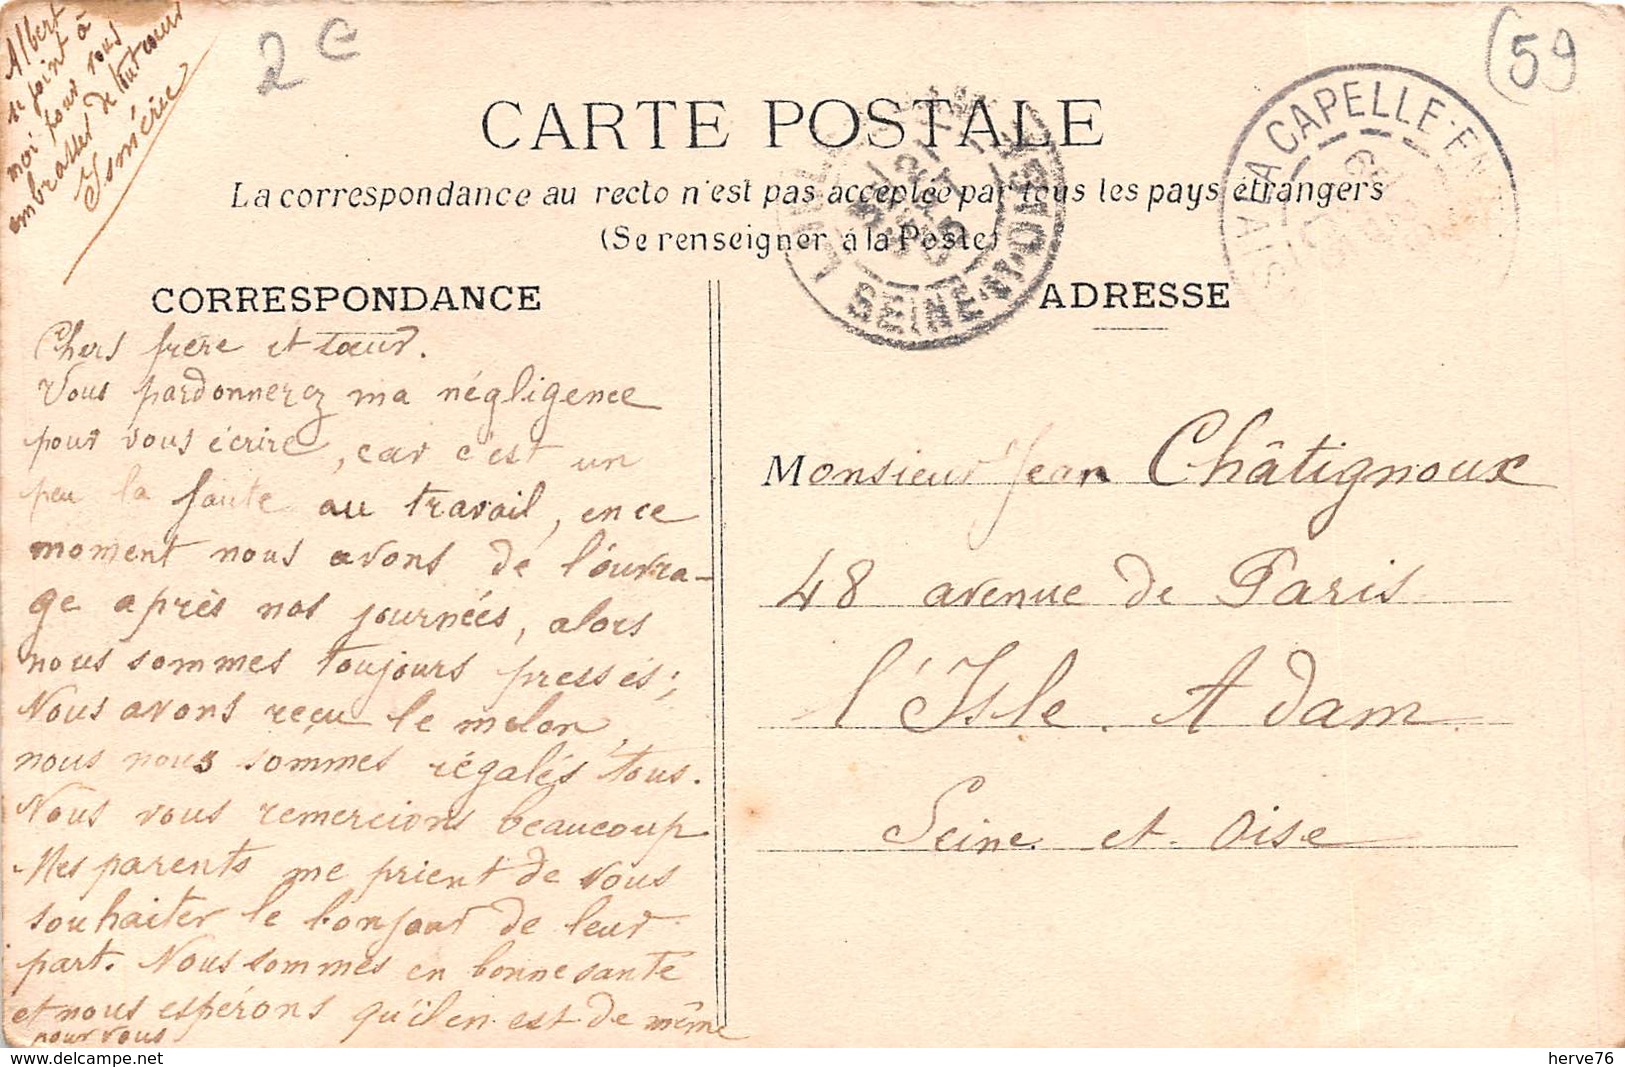 Albert
se joint à
moi pour vous
embrasser de tout cœur
Ismérie
2 €
(59
CARTE POSTALE
La correspondance au recto n'est pas acceptée par tous les pays étrangers
(Se renseigner à la Poste)
LA CAPELLE-EN
AIS
SEINE-ET-OISE
CORRESPONDANCE
Chers frère et sœur.
Vous pardonnerez ma négligence
pour vous écrire, car c'est un
peu la faute au travail, en ce
moment nous avons de l'ouvra-
ge après nos journées, alors
nous sommes toujours pressés;
Nous avons reçu le melon,
nous nous sommes régalés tous.
Nous vous remercions beaucoup
Mes parents me prient de vous
souhaiter le bonjour de leur
part. Nous sommes en bonne santé
et nous espérons qu'il en est de même
pour vous
ADRESSE
Monsieur Jean Châtignoux
48 avenue de Paris
l'Isle Adam
Seine et Oise
hervé76